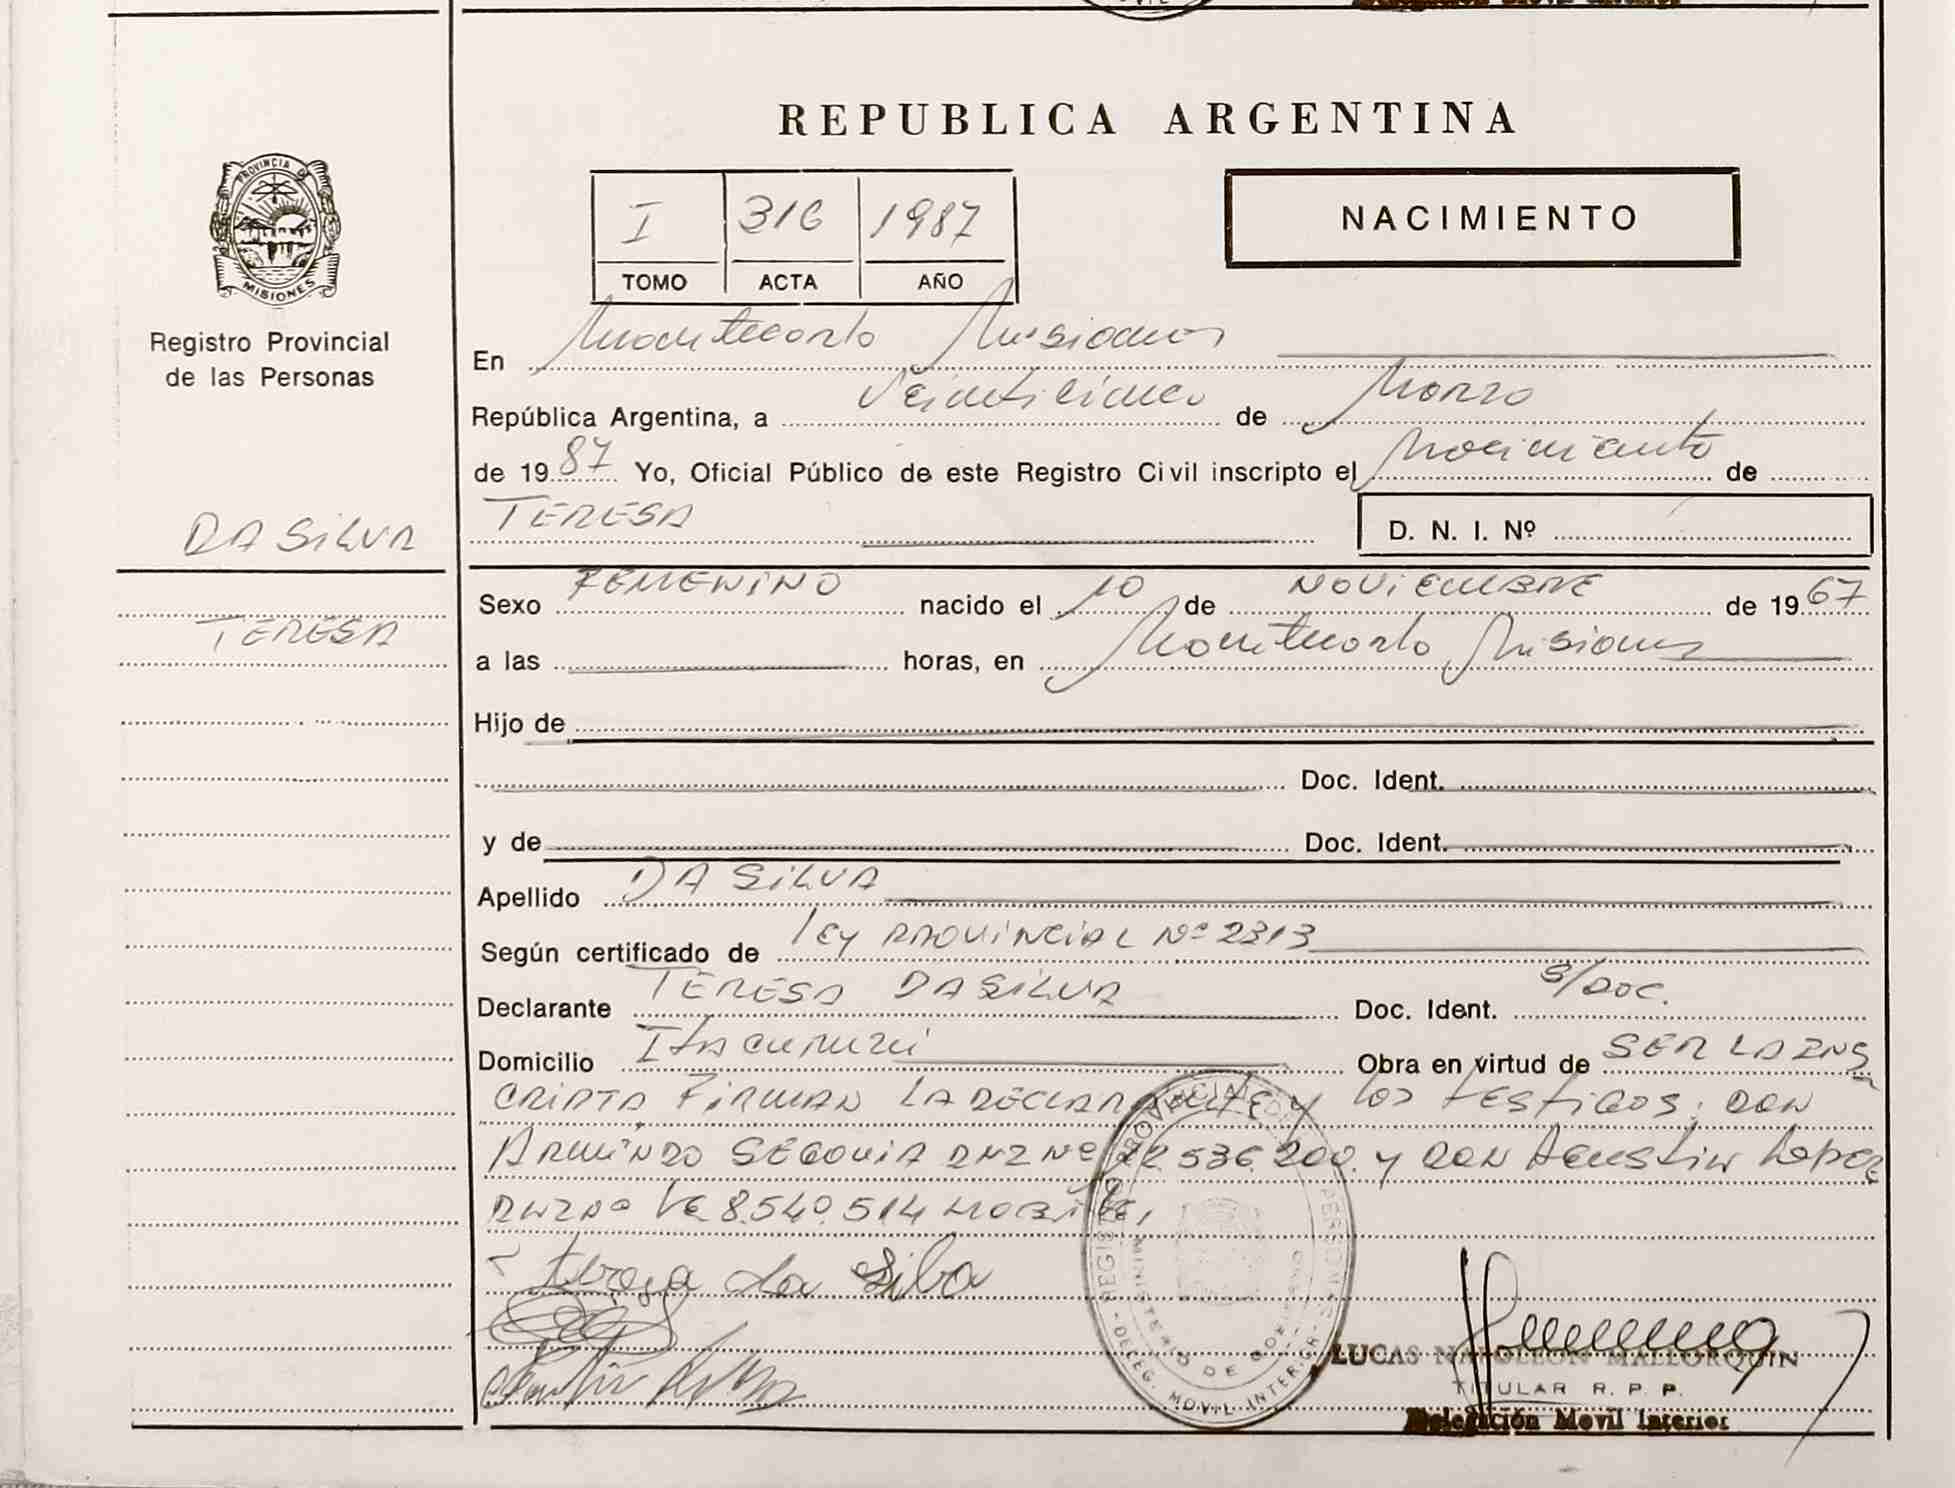 REPUBLICA ARGENTINA
PROVINCIA DE
MISIONES
Registro Provincial
de las Personas
I 316 1987
TOMO ACTA AÑO
NACIMIENTO
En Montecarlo Misiones
República Argentina, a Veinticinco de Marzo
de 1987 Yo, Oficial Público de este Registro Civil inscripto el Nacimiento de
DA SILVA
TERESA
TERESA
D. N. I. Nº
Sexo FEMENINO nacido el 10 de NOVIEMBRE de 1967
a las horas, en Montecarlo Misiones
Hijo de
Doc. Ident.
y de Doc. Ident.
Apellido DA SILVA
Según certificado de ley PROVINCIAL Nº 2313
Declarante TERESA DA SILVA Doc. Ident. S/DOC.
Domicilio Itacuruzú Obra en virtud de SER LA INS
CRIPTA FIRMAN LA DECLARANTE y los testigos: DON
ARMINDO SEGOVIA DNI Nº 12.536.200 y DON Agustin Lopez
DNI Nº 8.540.514
teresa da Silba
REGISTRO PROVINCIAL DE LAS PERSONAS
MINISTERIO DE GOBIERNO
DELEG. MOVIL INTERIOR
LUCAS NAPOLEON MALLORQUIN
TITULAR R. P. P.
Delegación Movil Interior